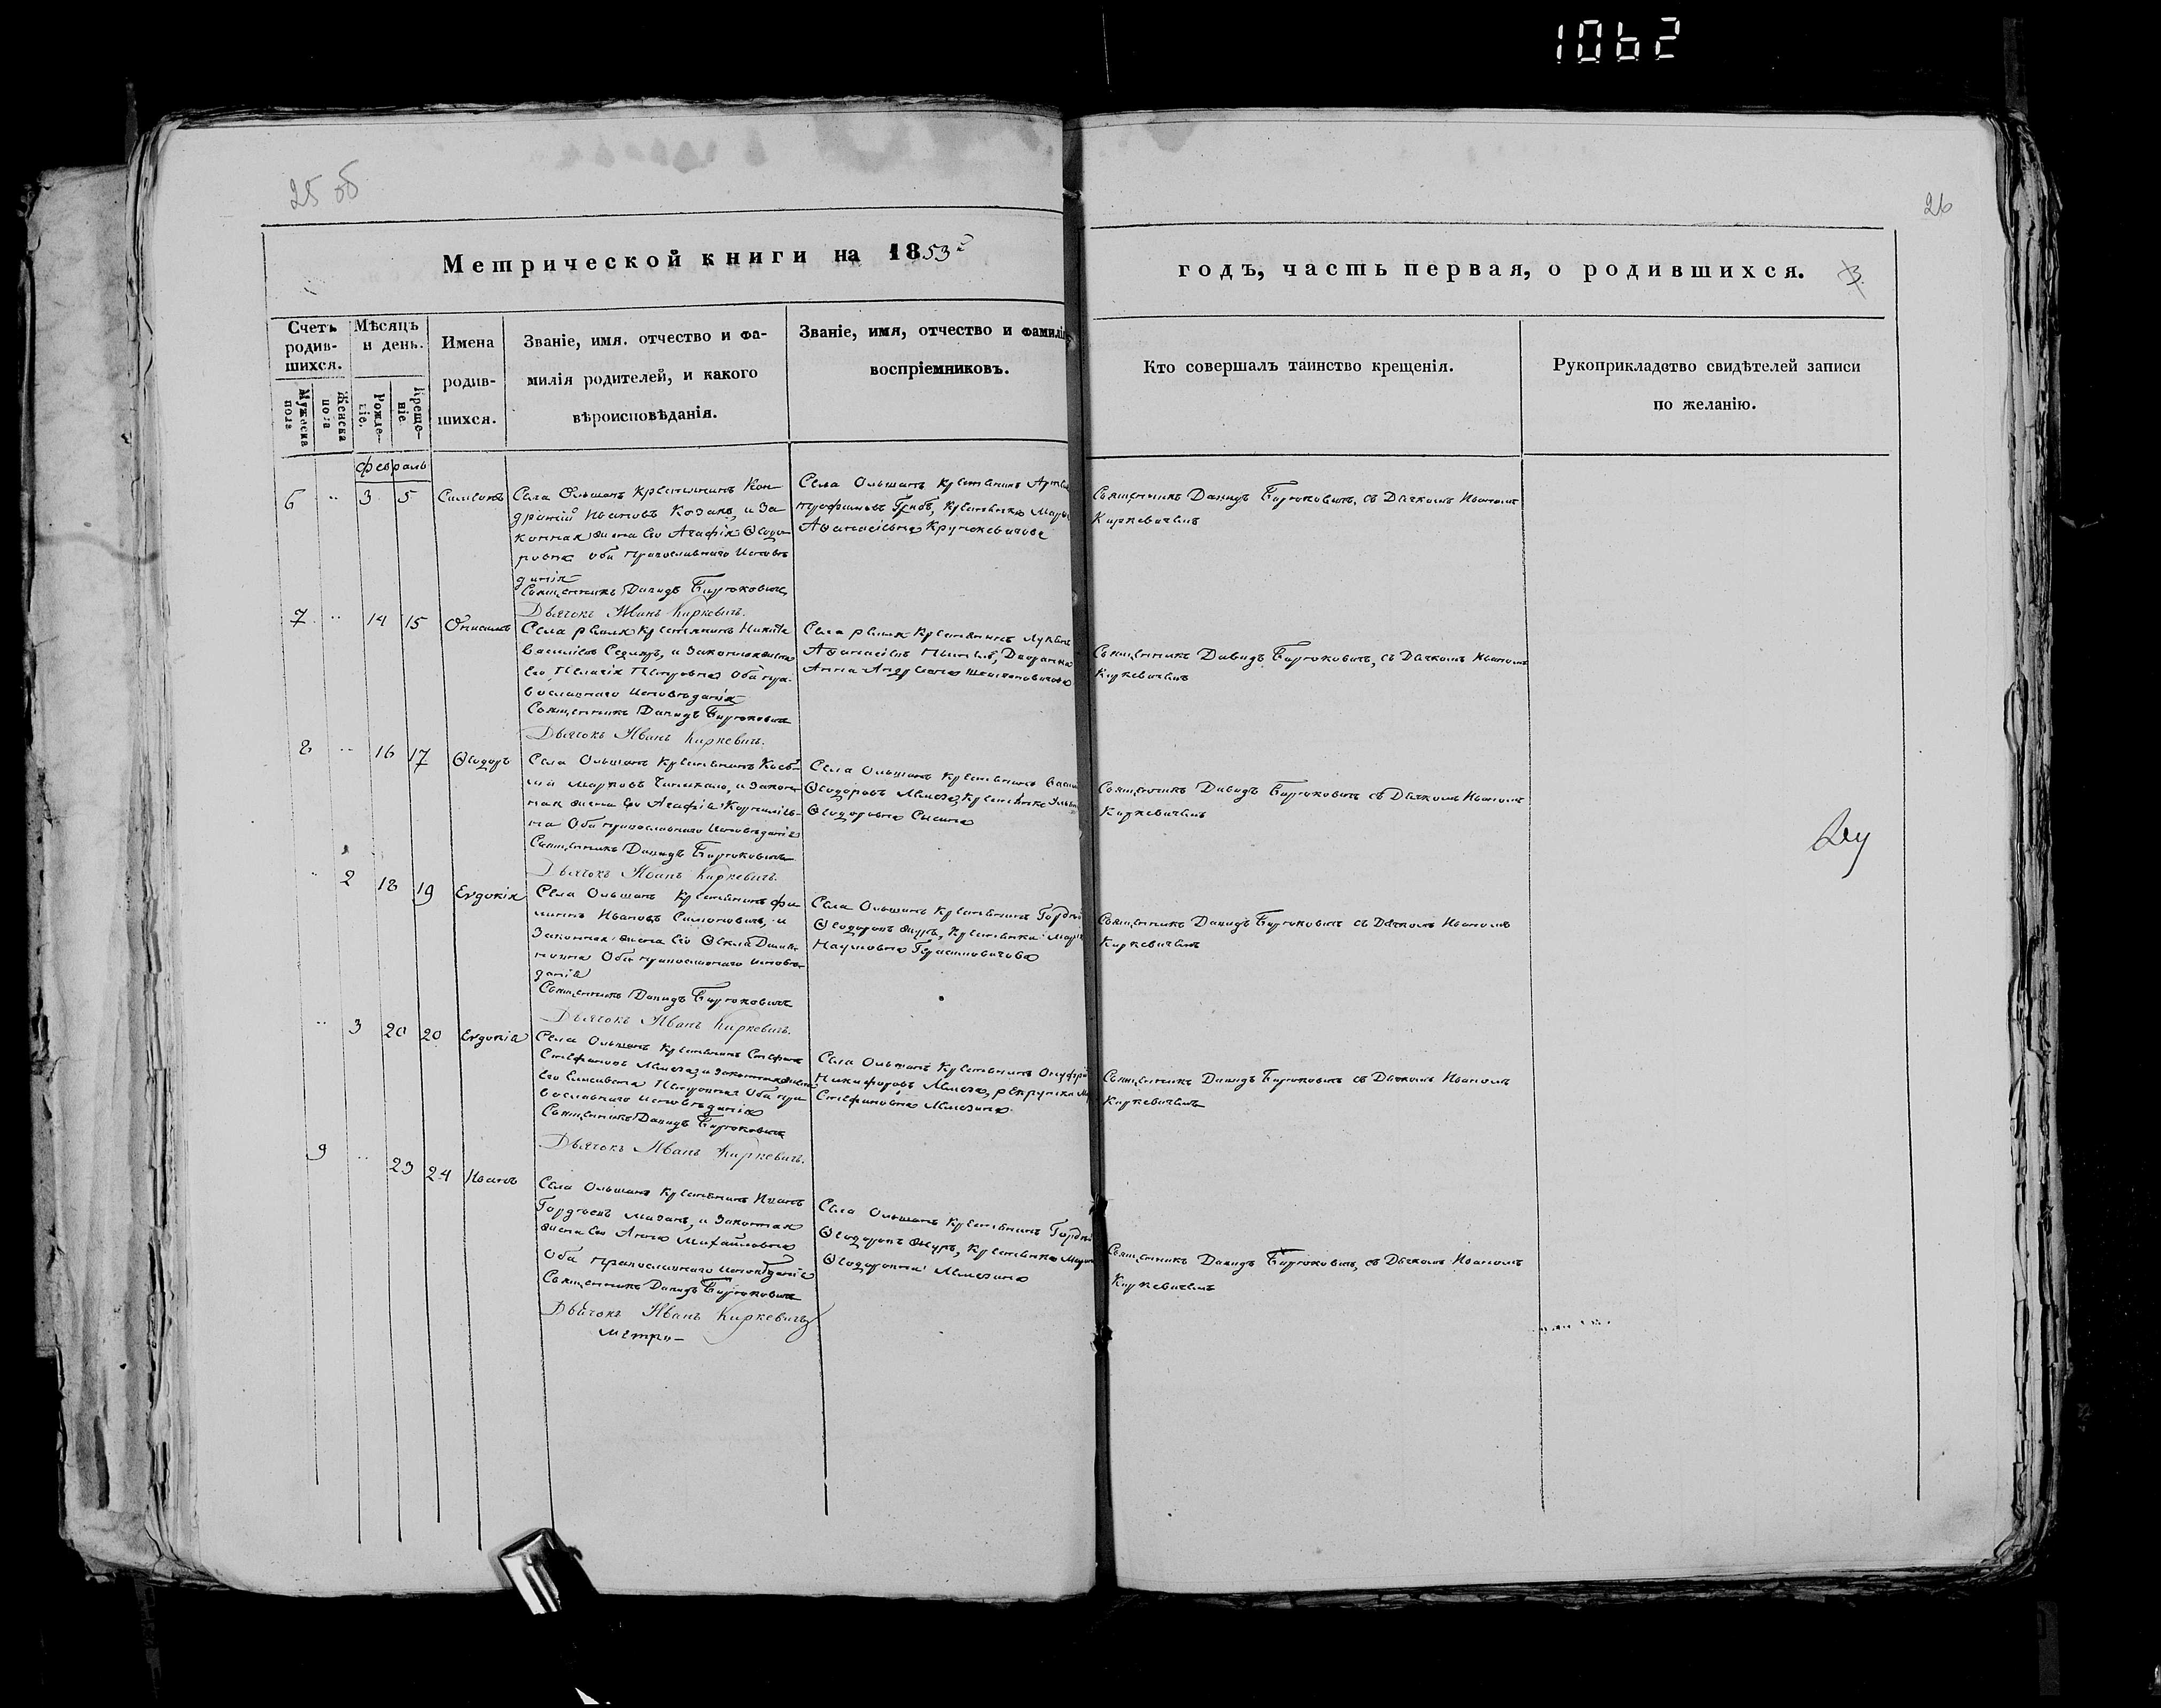 1062
25 об
26
Метрической книги на 1853й
годъ, часть первая, о родившихся. 3.
Счетъ родив-шихся.
Мѣсяцъ и день.
Имена родив-шихся.
Званіе, имя, отчество и фа-
милія родителей, и какого
вѣроисповѣданія.
Званіе, имя, отчество и фамилія
воспріемниковъ.
Кто совершалъ таинство крещенія.
Рукоприкладство свидѣтелей записи
по желанію.
Мужеска пола
Женска пола
Рожде-ніе.
Креще-ніе
февраль
6 .. 3 5 Симеонъ
Села Ольшанъ Крестьянинъ Кон-
дратій Ивановъ Козакъ, и За-
конная жена его Агафія Ѳеодо-
ровна оба православнаго исповѣ
данія
Священникъ Давидъ Бирюковичь
Дьячокъ Иванъ Киркевичъ.
Села Ольшанъ Крестьянинъ
Трофимовъ Грибъ, Крестьянка
Аѳанасіевна Крупкевичова
Священникъ Давидъ Бирюковичъ, съ Дячкомъ Иваномъ
Киркевичемъ
7 .. 14 15 Онисимъ
Села Крестьянинъ Никита
Василіевъ Седляръ, и Законная жена
его Пелагія Петровна Оба пра-
вославнаго исповѣданія
Священникъ Давидъ Бирюковичь
Дьячокъ Иванъ Киркевичъ.
Села Крестьянинъ
Аѳанасіевъ Дворянка
Анна Андреева
Священникъ Давидъ Бирюковичъ, съ Дячкомъ Иваномъ
Киркевичемъ
8 .. 16 17 Ѳеодоръ
Села Ольшанъ Крестьянинъ Косъ-
ма Марковъ и закон-
ная жена его Агафія Корниліев-
на Оба православнаго исповѣданія
Священникъ Давидъ Бирюковичь
Дьячокъ Иванъ Киркевичъ.
Села Ольшанъ Крестьянинъ
Ѳеодоровъ Мелеза, Крестьянка
Ѳеодоровна
Священникъ Давидъ Бирюковичъ съ Дячкомъ Иваномъ
Киркевичемъ
.. 2 18 19 Евдокія
Села Ольшанъ Крестьянинъ Фи-
липпъ Ивановъ Симоновичъ, и
Законная жена его Ѳекла
Оба православнаго исповѣ-
данія
Священникъ Давидъ Бирюковичь
Дьячокъ Иванъ Киркевичъ.
Села Ольшанъ Крестьянинъ Гордѣй
Ѳеодоровъ Жукъ, Крестьянка
Наумовна Герасимовичова
Священникъ Давидъ Бирюковичъ съ Дячкомъ Иваномъ
Киркевичемъ
.. 3 20 20 Евдокія
Села Ольшанъ Крестьянинъ Стефанъ
Стефановъ Мелеза, и законная жена
его Елисавета Петровна Оба пра-
вославнаго исповѣданія
Священникъ Давидъ Бирюковичь
Дьячокъ Иванъ Киркевичъ.
Села Ольшанъ Крестьянинъ Онуфрій
Никифоровъ Мелеза, рекрутка
Стефановна Мелезина
Священникъ Давидъ Бирюковичъ съ Дячкомъ Иваномъ
Киркевичемъ
9 .. 23 24 Иванъ
Села Ольшанъ Крестьянинъ Иванъ
Гордѣевъ и Законная
жена его Анна Михайловна
Оба православнаго исповѣданія
Священникъ Давидъ Бирюковичь
Дьячокъ Иванъ Киркевичъ
Метри-
Села Ольшанъ Крестьянинъ Гордѣй
Ѳеодоровъ Жукъ, Крестьянка
Ѳеодоровна Мелезина
Священникъ Давидъ Бирюковичъ, съ Дячкомъ Иваномъ
Киркевичемъ